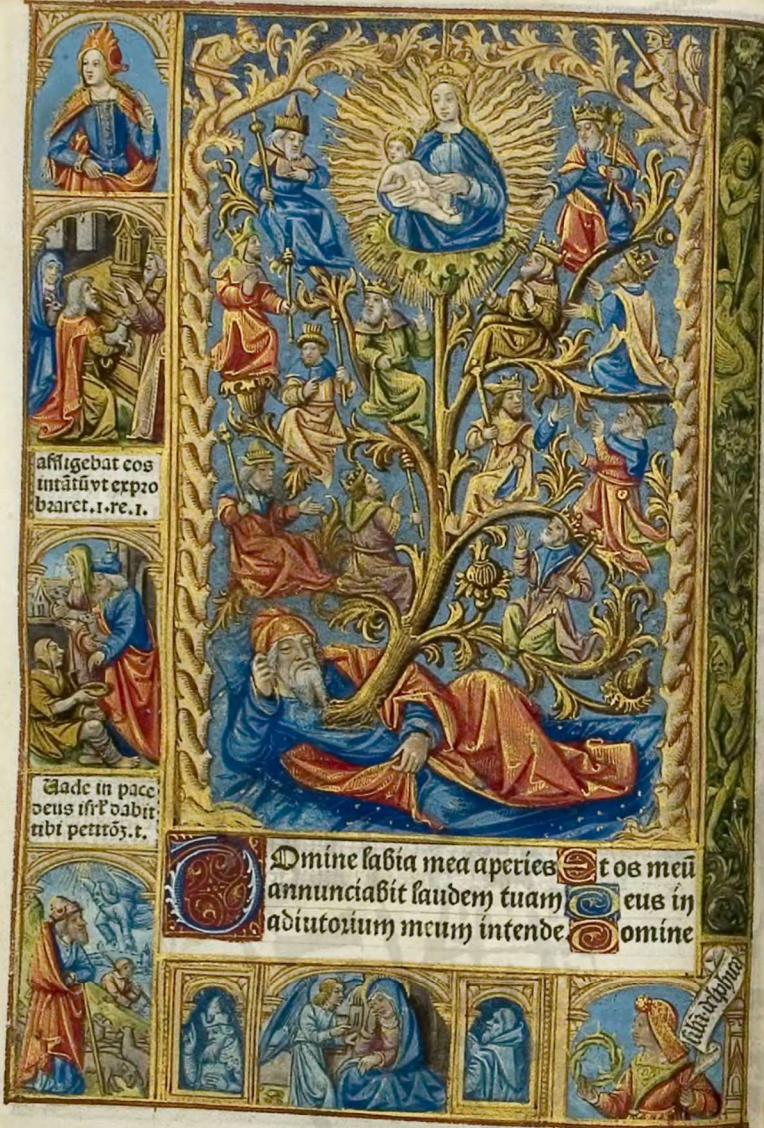 affligebat eos
intātū vt expro
braret.1.re.1.
Uade in pace
deus isrl' dabit
tibi petitōȝ.t.
Domine labia mea aperies Et os meū
annunciabit laudem tuam Deus in
adiutorium meum intende. Domine
sibi.delphica